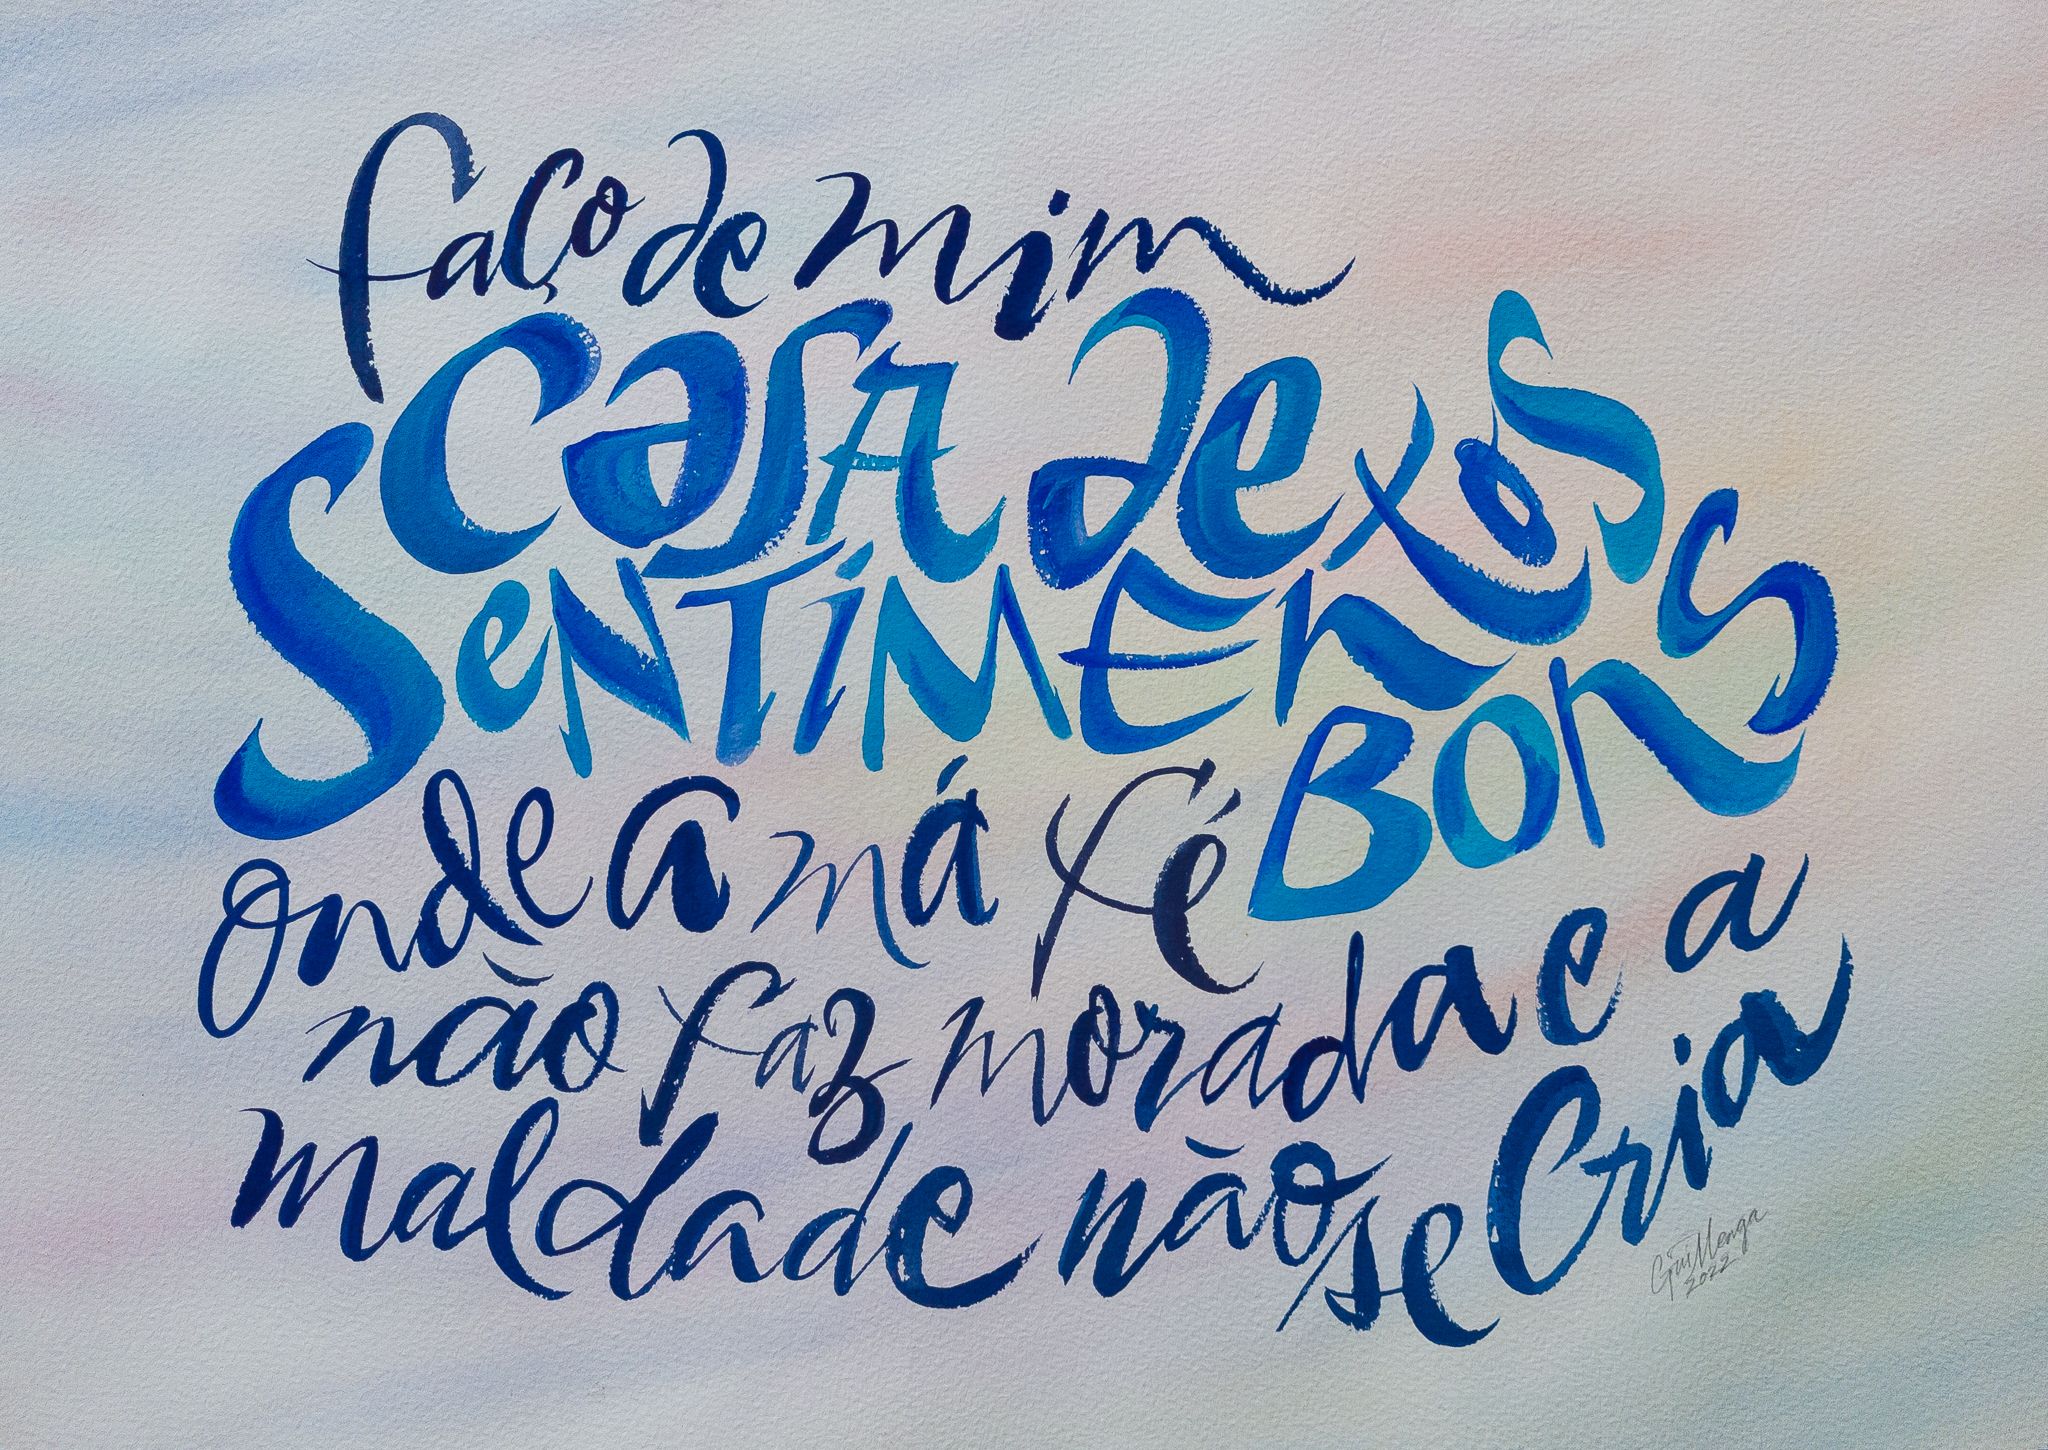 faço de mim
casa de
sentimentos
bons
onde a má fé
não faz morada e a
maldade não se cria
Gui Menga
2022